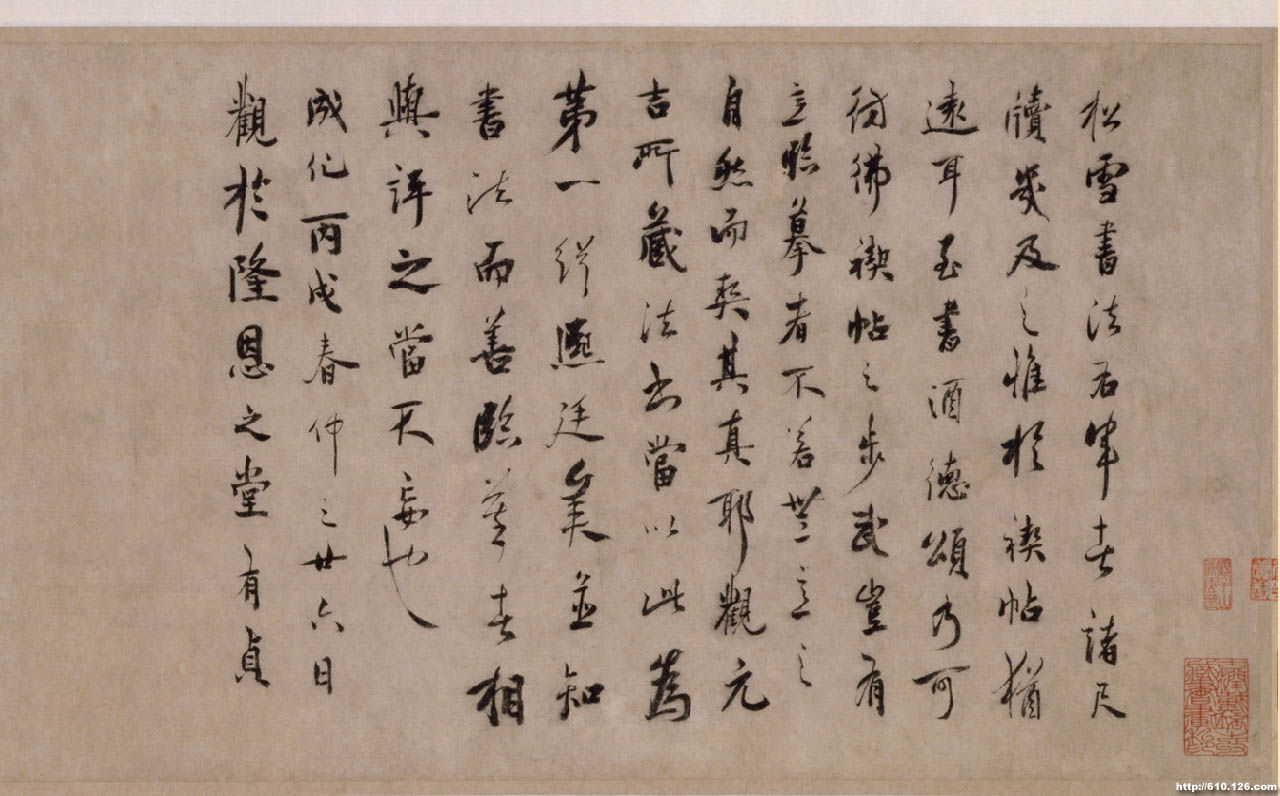 松雪書法右軍者諸尺
牘幾及之惟於禊帖猶
遠耳至書酒德頌乃可
彷彿禊帖之步武豈有
意臨摹者不若無意之
自然而契其真耶觀元
吉所藏法書當以此為
第一緙熙廷美並知
書法而善臨摹者相
與評之當不妄也
成化丙戌春仲之廿六日
觀於隆恩之堂有貞
http://610.126.com